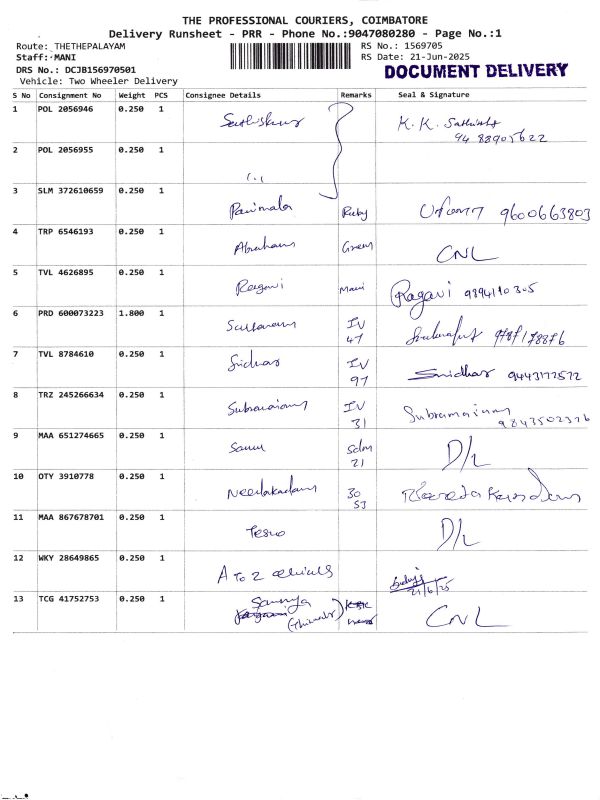 THE PROFESSIONAL COURIERS, COIMBATORE
Delivery Runsheet - PRR - Phone No.:9047080280 - Page No.:1
Route: THETHEPALAYAM
RS No.: 1569705
Staff: MANI
RS Date: 21-Jun-2025
DRS No.: DCJB156970501
DOCUMENT DELIVERY
Vehicle: Two Wheeler Delivery
S No Consignment No Weight PCS Consignee Details Remarks Seal & Signature
1 POL 2056946 0.250 1 K.K.
2 POL 2056955 0.250 1
3 SLM 372610659 0.250 1 Parimala Ruby 9600663803
4 TRP 6546193 0.250 1 Abraham Green CNL
5 TVL 4626895 0.250 1 Ragavi Mani Ragavi 9894110305
6 PRD 600073223 1.800 1 IV
47
7 TVL 8784610 0.250 1 Sridhar IV Sridhar 9443177572
97
8 TRZ 245266634 0.250 1 IV
31 9843502376
9 MAA 651274665 0.250 1 D/L
21
10 OTY 3910778 0.250 1 30
53
11 MAA 867678701 0.250 1 D/L
12 WKY 28649865 0.250 1 A to Z
21/6/25
13 TCG 41752753 0.250 1 CNL